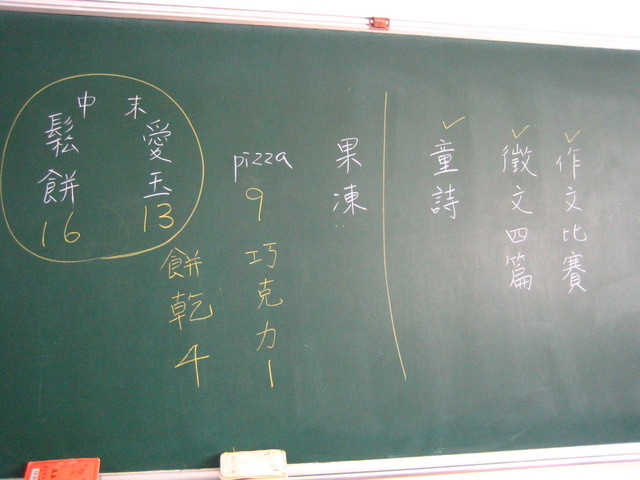 作文比賽
徵文四篇
童詩
果凍
pizza
9
巧克力
1
末
愛玉
13
餅乾
4
中
鬆餅
16